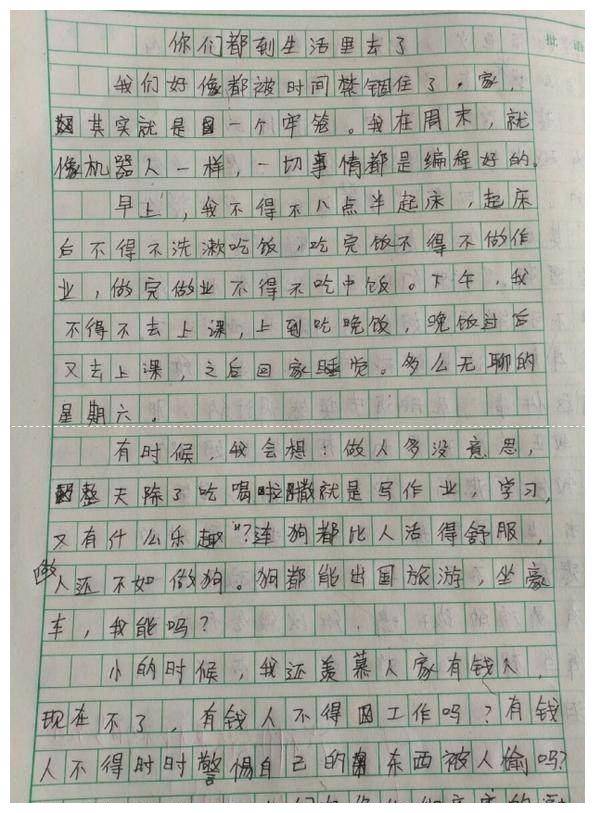 你们都到生活里去了
我们好像都被时间禁锢住了。家，
其实就是一个牢笼。我在周末，就
像机器人一样，一切事情都是编程好的。
早上，我不得不八点半起床，起床
后不得不洗漱吃饭，吃完饭不得不做作
业，做完做业不得不吃中饭。下午，我
不得不去上课，上到吃晚饭，晚饭过后
又去上课，之后回家睡觉。多么无聊的
星期六。
有时候，我会想：做人多没意思，
整天除了吃喝啦撒就是写作业，学习，
又有什么乐趣"？连狗都比人活得舒服，
做人还不如做狗。狗都能出国旅游，坐豪
车，我能吗？
小的时候，我还羡慕人家有钱人，
现在不了，有钱人不得工作吗？有钱
人不得时时警惕自己的东西被人偷吗？